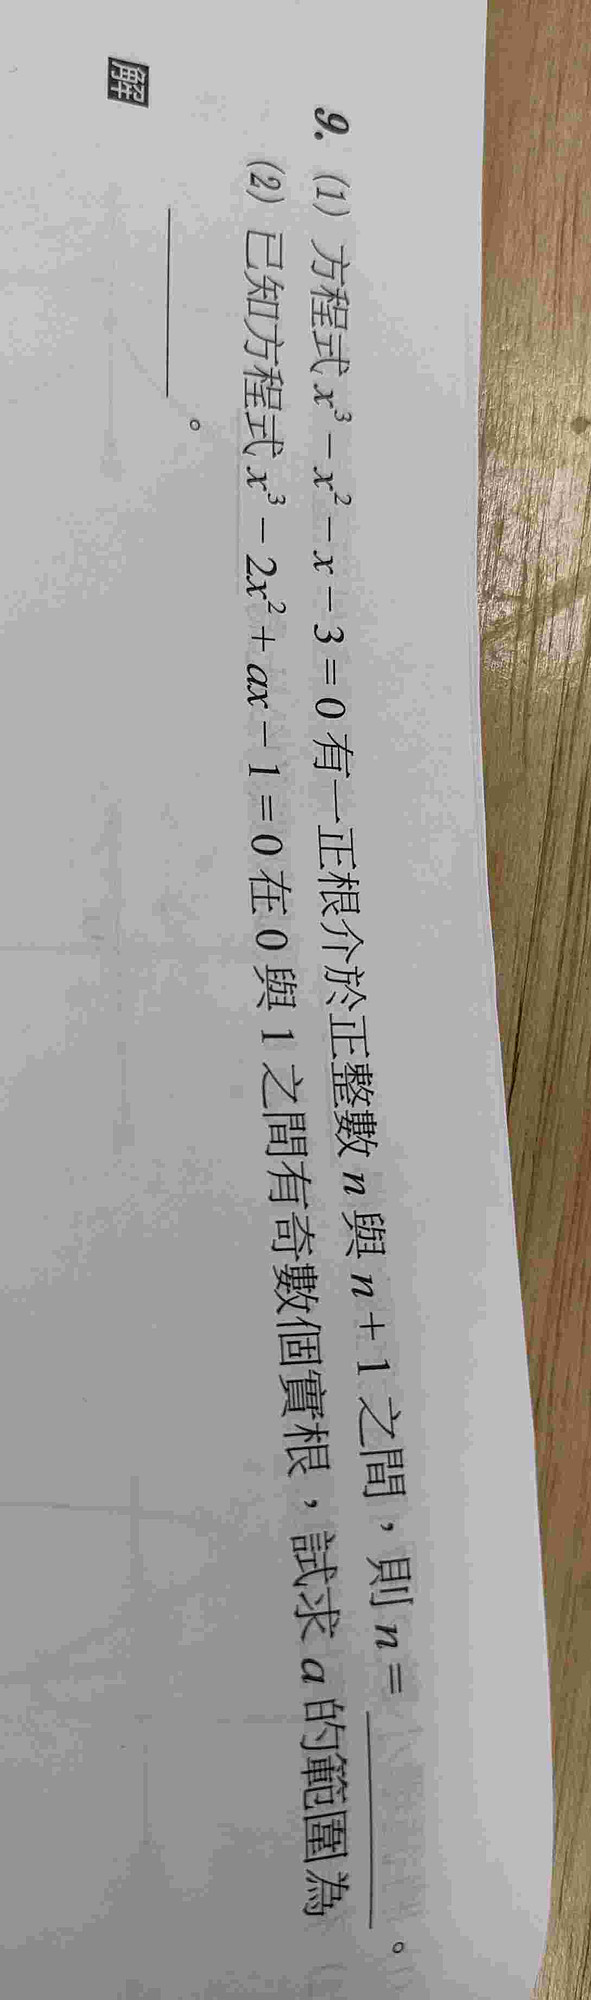 9. (1) 方程式 x³ − x² − x − 3 = 0 有一正根介於正整數 n 與 n + 1 之間，則 n = ______。
(2) 已知方程式 x³ − 2x² + ax − 1 = 0 在 0 與 1 之間有奇數個實根，試求 a 的範圍為
______。
解